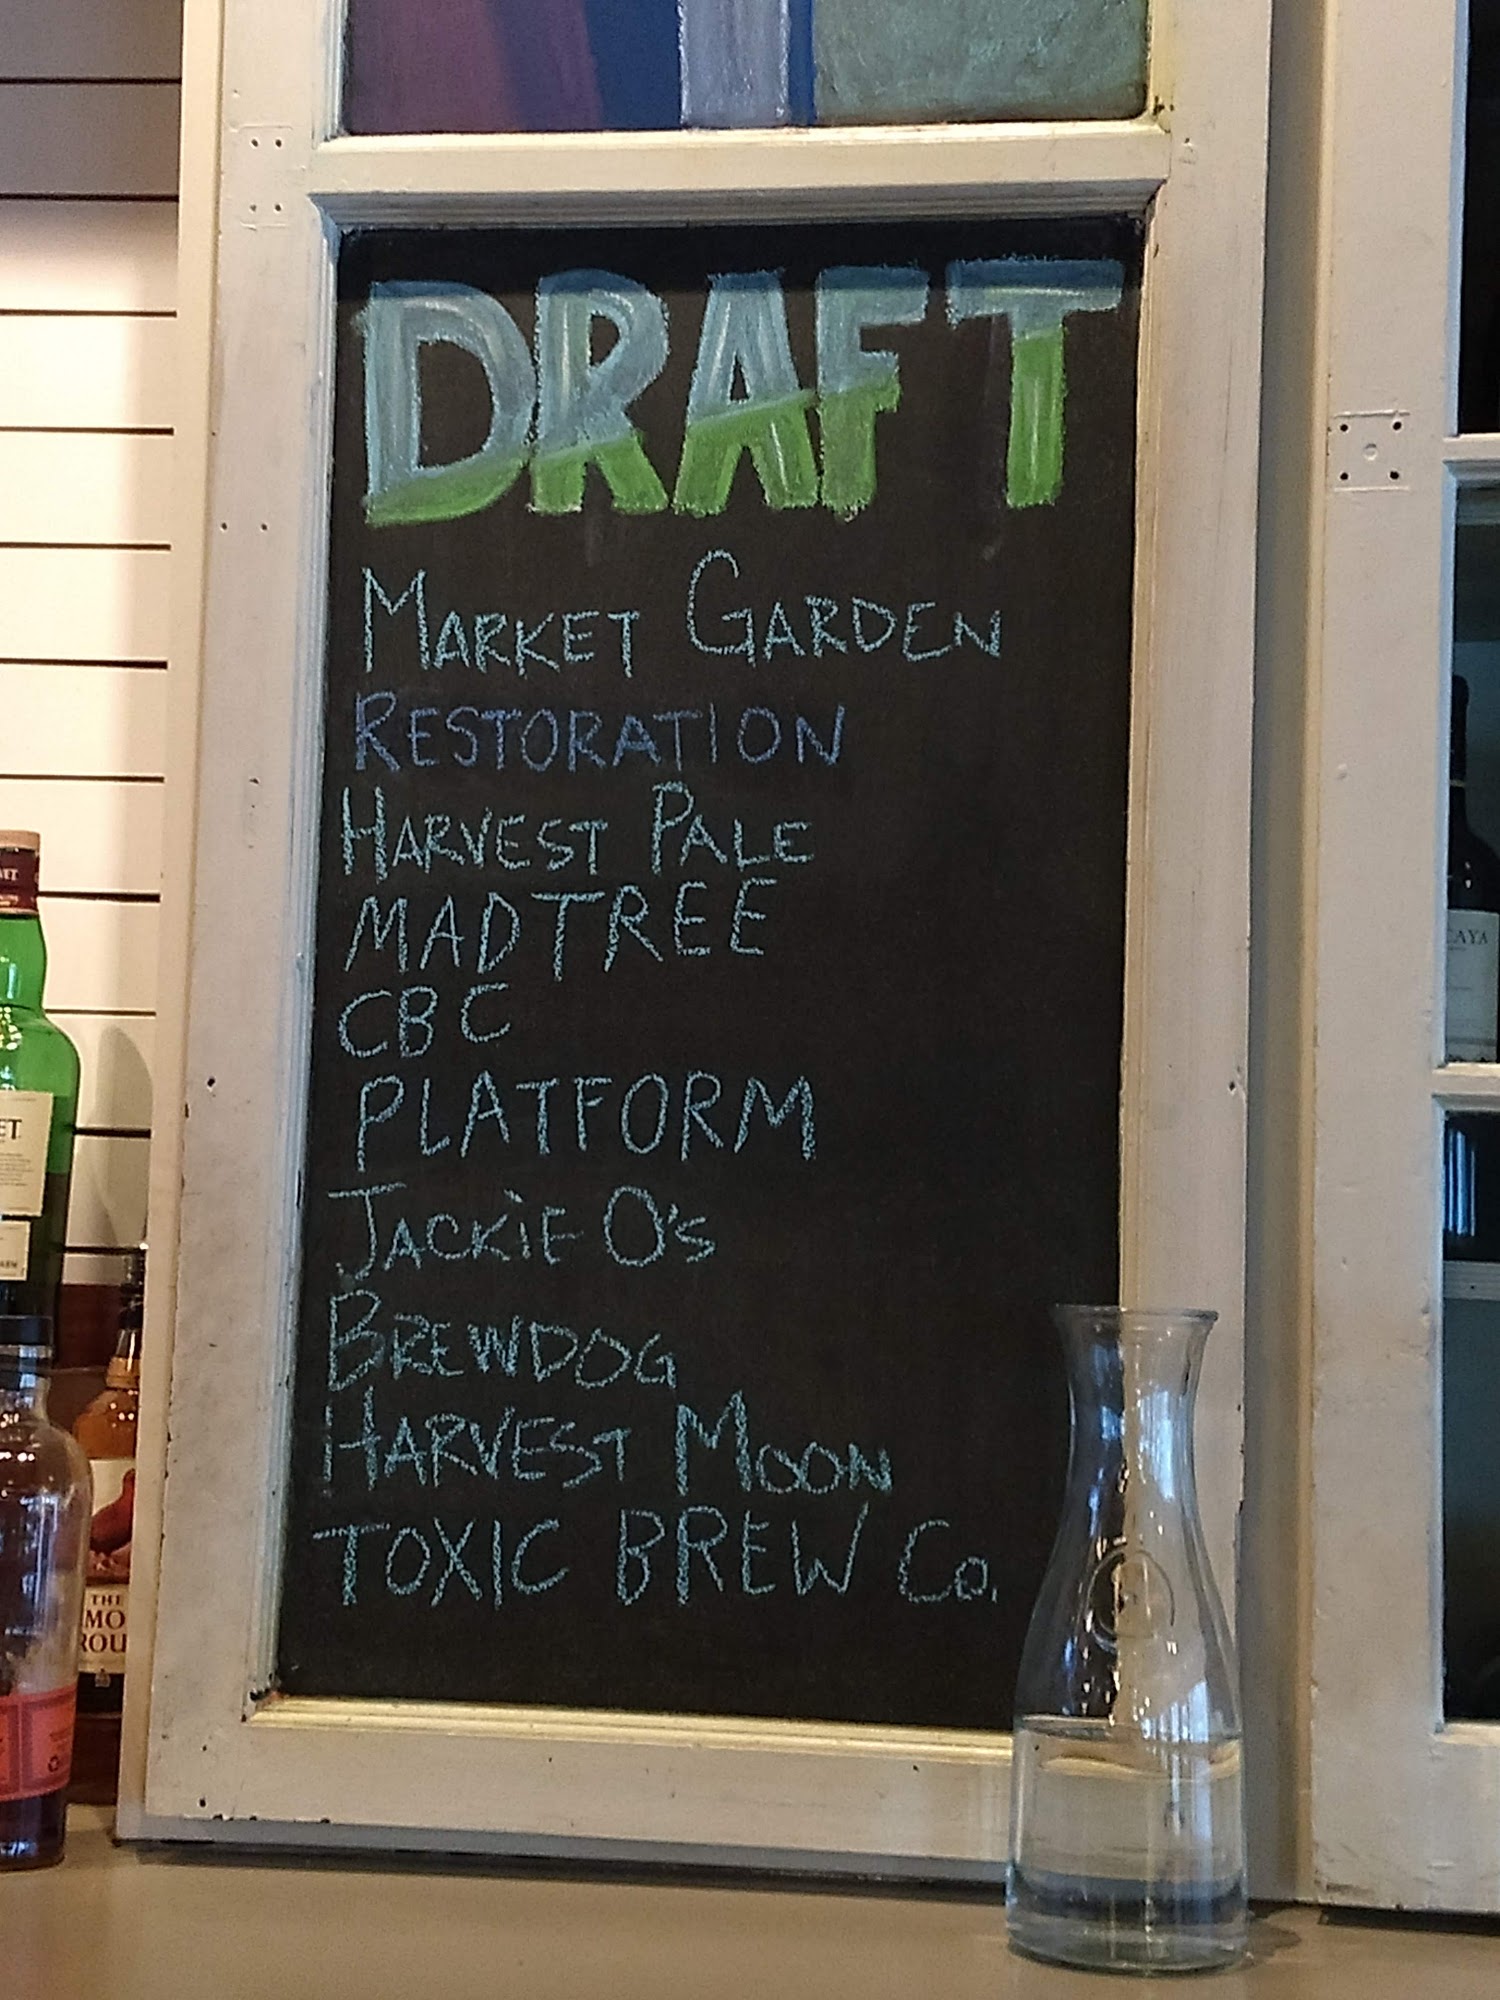 DRAFT
MARKET GARDEN
RESTORATION
HARVEST PALE
MADTREE
CBC
PLATFORM
JACKiE O's
BREWDOG
HARVEST MOON
TOXIC BREW Co.
THE